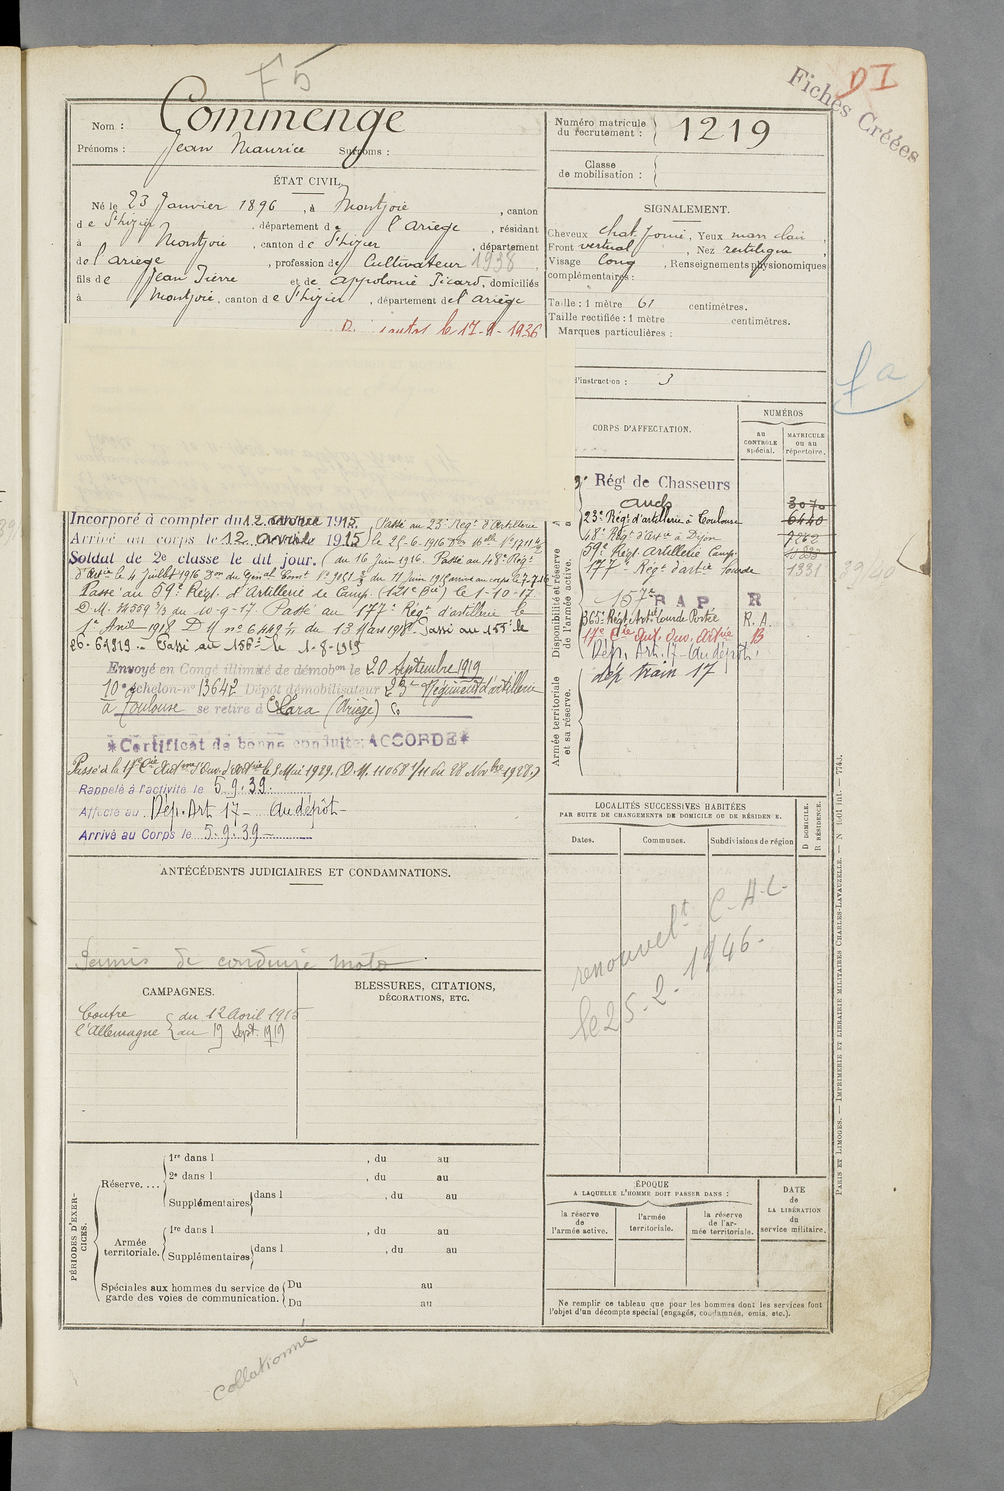 F5
DI
Fiches Créées
Nom : Commenge
Prénoms : Jean Maurice Surnoms :
Numéro matricule du recrutement : 1219
Classe de mobilisation :
ÉTAT CIVIL.
Né le 23 Janvier 1896, à Montjoie, canton
de St Lizier, département de l'ariège, résidant
à Montjoie, canton de St Lizier, département
de l'ariège, profession de Cultivateur 1938,
fils de Jean Pierre et de appolonie Picard, domiciliés
à Montjoie, canton de St Lizier, département de l'ariège
le 17-9-1936
SIGNALEMENT.
Cheveux chat. foncé, Yeux,
Front vertical, Nez rectiligne,
Visage long, Renseignements physionomiques
complémentaires :
Taille : 1 mètre 61 centimètres.
Taille rectifiée : 1 mètre centimètres.
Marques particulières :
d'instruction : 3
CORPS D'AFFECTATION.
NUMÉROS
au CONTRÔLE spécial.
MATRICULE ou au répertoire.
Disponibilité et réserve de l'armée active.
Régt de Chasseurs
23e Régt d'artillerie à Toulouse 6440
48e Régt d'artie à Dijon
59e Régt artillerie Camp.
177e Régt d'artie lourde 1331
39/40
157e R A P R
365e Régt Art. Lourde Portée R. A.
17e Cie Aut. Ouv. Artie B
Dép. Art. 17 - (au dépôt)
Armée territoriale et sa réserve.
dép train 17
Incorporé à compter du 12 avril 1915. Passé au 23e Régt d'Artillerie
Arrivé au corps le 12 avril 1915 le 25-6-1916
Soldat de 2e classe le dit jour. du 16 Juin 1916. Passé au 48e Régt
d'artie le 4 Juillet 1916 du 11 Juin 1916 arrivé au corps le 7-7-16
Passé au 59e Régt. d'Artillerie de Camp. (121e Bie) le 1-10-17.
D.M. 24559 2/3 du 10-9-17. Passé au 177e Régt d'artillerie le
1er Avril 1918 D M no 6449 du 13 Mars 1918. Passé au 155e le
Passé au 156e le 1-8-1919
Envoyé en Congé illimité de démobon le 20 Septembre 1919
10e échelon - no 13642 Dépôt démobilisateur 23e Régiment d'artillerie
à Toulouse se retire à Clara (Ariège)
*Certificat de bonne conduite: ACCORDÉ*
Passé à la 17e Cie Autome d'Ouv. d'Artie le 1 Mai 1929. (D.M. 11068 1/11 du 28 Novbre 1928.)
Rappelé à l'activité le 5.9.39.
Affecté au Dép. Art 17 - au dépôt -
Arrivé au Corps le 5.9.39 -
ANTÉCÉDENTS JUDICIAIRES ET CONDAMNATIONS.
Permis de conduire moto
CAMPAGNES.
Contre l'Allemagne du 12 Avril 1915 au 19 Sept. 1919
BLESSURES, CITATIONS, DÉCORATIONS, ETC.
LOCALITÉS SUCCESSIVES HABITÉES
PAR SUITE DE CHANGEMENTS DE DOMICILE OU DE RÉSIDENCE.
Dates.
Communes.
Subdivisions de région
D DOMICILE.
R RÉSIDENCE.
renouvelt C.H.L.
le 25-2-1946-
PÉRIODES D'EXERCICES.
Réserve....
1re dans l , du au
2e dans l , du au
Supplémentaires dans l , du au
Armée territoriale.
1re dans l , du au
Supplémentaires dans l , du au
Spéciales aux hommes du service de garde des voies de communication.
Du au
Du au
ÉPOQUE
A LAQUELLE L'HOMME DOIT PASSER DANS :
la réserve de l'armée active.
l'armée territoriale.
la réserve de l'armée territoriale.
DATE de LA LIBÉRATION du service militaire.
Ne remplir ce tableau que pour les hommes dont les services font
l'objet d'un décompte spécial (engagés, condamnés, omis, etc.).
PARIS ET LIMOGES. — IMPRIMERIE ET LIBRAIRIE MILITAIRES CHARLES-LAVAUZELLE.
Collationné